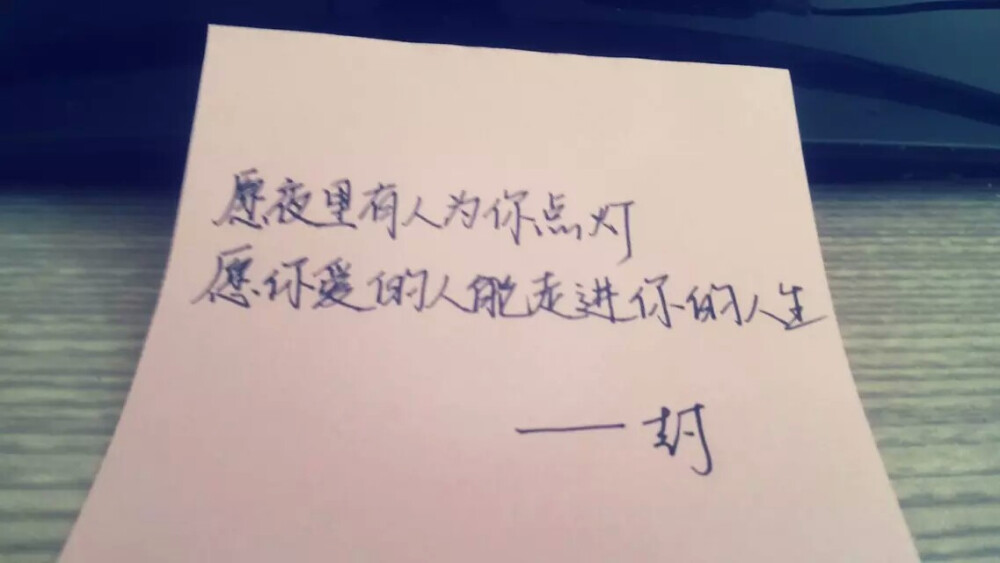 愿夜里有人为你点灯
愿你爱的人能走进你的人生
——封